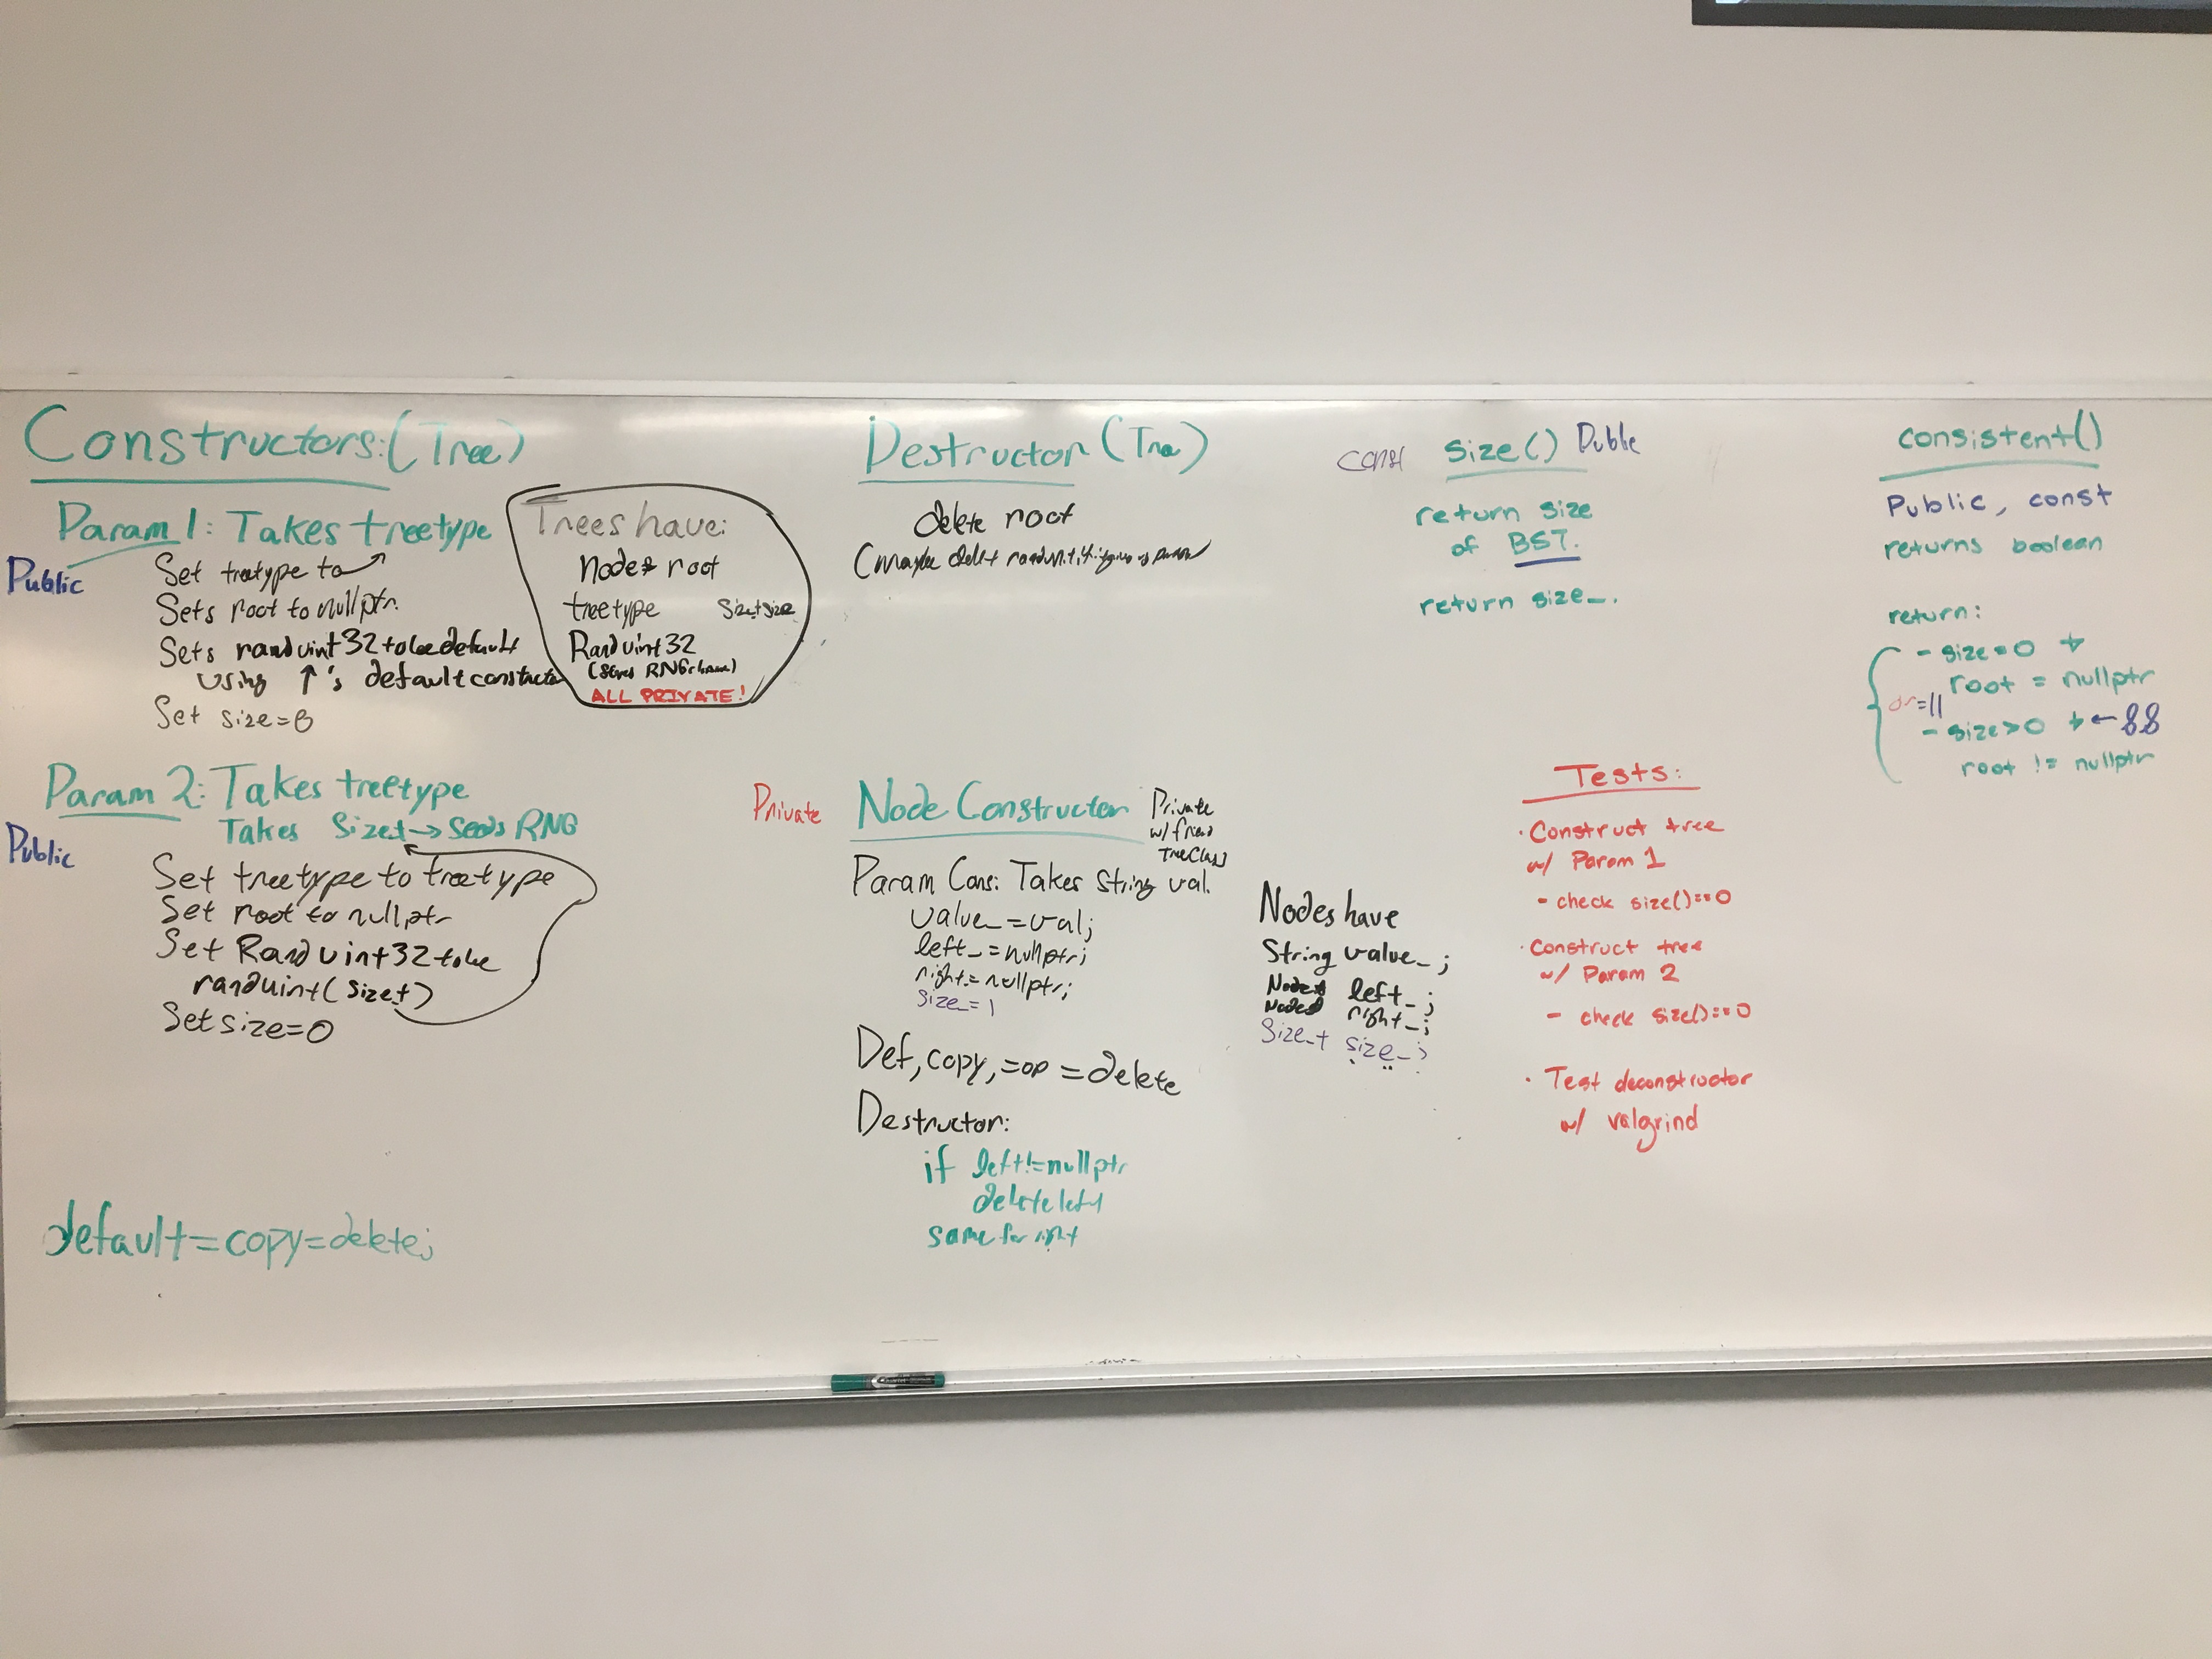 Constructors: (Tree)
Param 1: Takes treetype
Public
Set treetype to
Sets root to nullptr.
Sets randuint32 to be default
using ↑'s default constructor
Set size=0
Trees have:
Node* root
treetype size_t size
Randuint32
(Stores RNG chosen)
ALL PRIVATE!
Param 2: Takes treetype
Takes Size_t → Seeds RNG
Public
Set treetype to treetype
Set root to nullptr
Set Randuint32 to be
randuint(size_t)
Set size=0
default=copy=delete;
Destructor (Tree)
delete root
(maybe delete
Private
Node Constructor
Private
w/ friend
TreeClass
Param Cons: Takes String val.
value_=val;
left_=nullptr;
right_=nullptr;
size_=1
Def, copy, =op =delete
Destructor:
if left!=nullptr
delete left
same for right
Nodes have
String value_;
Node* left_;
Node* right_;
Size_t size_;
const size() Public
return size
of BST.
return size_.
Tests:
· Construct tree
w/ Param 1
- check size()==0
· Construct tree
w/ Param 2
- check size()==0
· Test deconstructor
w/ valgrind
consistent()
Public, const
returns boolean
return:
- size=0 +
root = nullptr
or=||
- size>0 + ← &&
root != nullptr